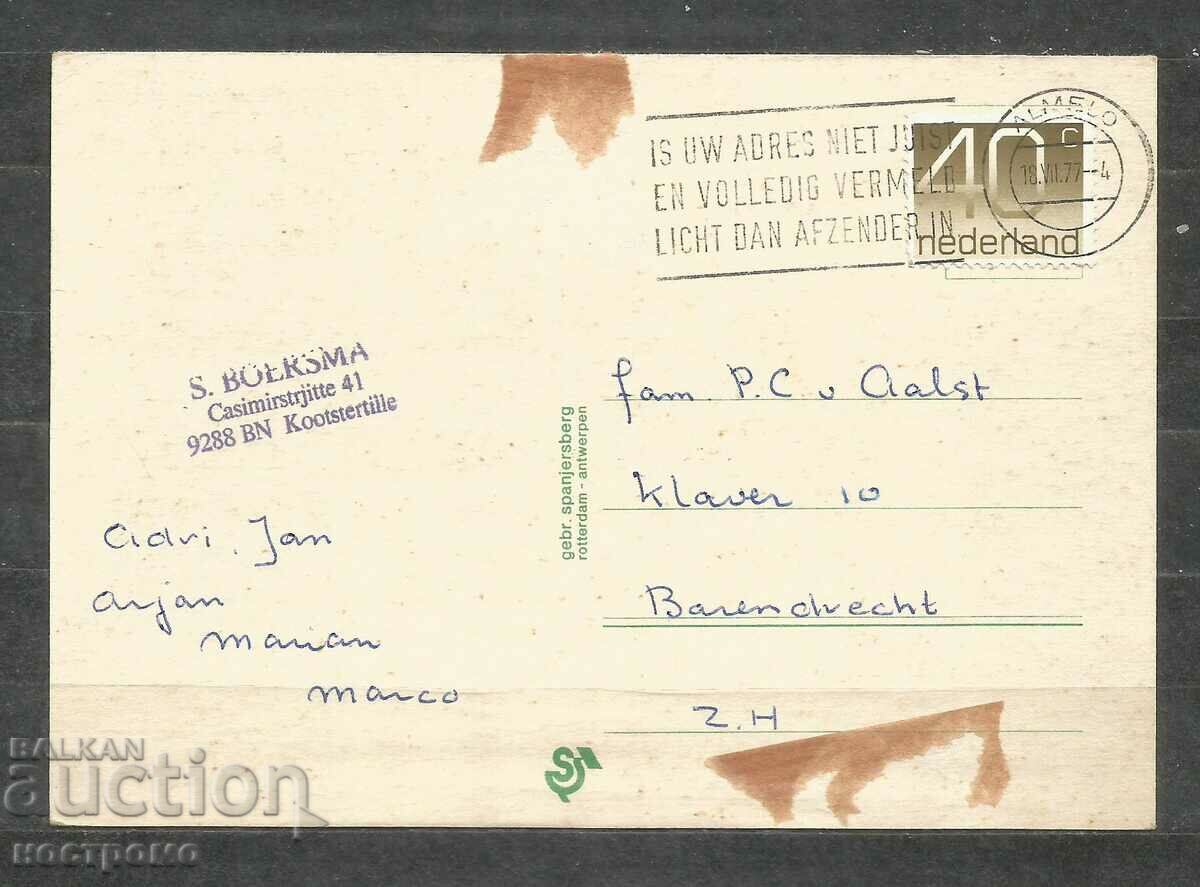 IS UW ADRES NIET JUIST
EN VOLLEDIG VERMELD
LICHT DAN AFZENDER IN
ALMELO
18.VII.77-4
40 c
nederland
S. BOERSMA
Casimirstrjitte 41
9288 BN Kootstertille
fam. P.C. v Aalst
Klaver 10
Barendrecht
Z.H
gebr. spanjersberg
rotterdam - antwerpen
Adri, Jan
Arjan
Marian
Marco
S
BALKAN
auction
костромо